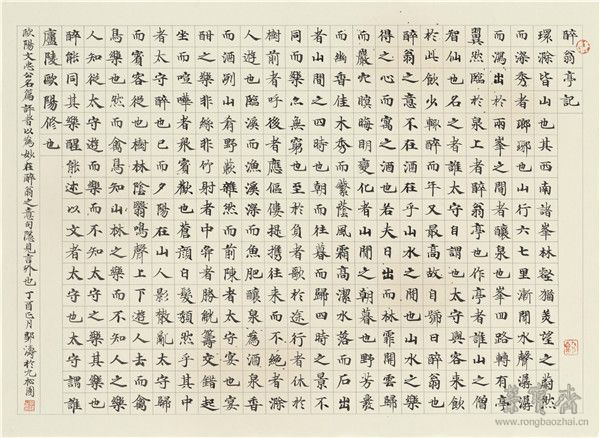 醉翁亭記
環滁皆山也其西南諸峯林壑猶美望之蔚然
而深秀者瑯琊也山行六七里漸聞水聲潺潺
而瀉出於兩峯之間者釀泉也峯回路轉有亭
翼然臨於泉上者醉翁亭也作亭者誰山之僧
智仙也名之者誰太守自謂也太守與客來飲
於此飲少輒醉而年又最高故自號曰醉翁也
醉翁之意不在酒在乎山水之間也山水之樂
得之心而寓之酒也若夫日出而林霏開雲歸
而巖穴暝晦明變化者山間之朝暮也野芳發
而幽香佳木秀而繁蔭風霜高潔水落而石出
者山間之四時也朝而往暮而歸四時之景不
同而樂亦無窮也至於負者歌於途行者休於
樹前者呼後者應傴僂提攜往來而不絕者滁
人遊也臨溪而漁溪深而魚肥釀泉為酒泉香
而酒洌山肴野蔌雜然而前陳者太守宴也宴
酣之樂非絲非竹射者中弈者勝觥籌交錯起
坐而諠譁者衆賓歡也蒼顏白髮頹然乎其中
者太守醉也已而夕陽在山人影散亂太守歸
而賓客從也樹林陰翳鳴聲上下遊人去而禽
鳥樂也然而禽鳥知山林之樂而不知人之樂
人知從太守遊而樂而不知太守之樂其樂也
醉能同其樂醒能述以文者太守也太守謂誰
廬陵歐陽修也
歐陽文忠公名篇評者以為妙在醉翁之意句隱見言外也 丁酉正月 於九松園
榮寶齋
www.rongbaozhai.cn